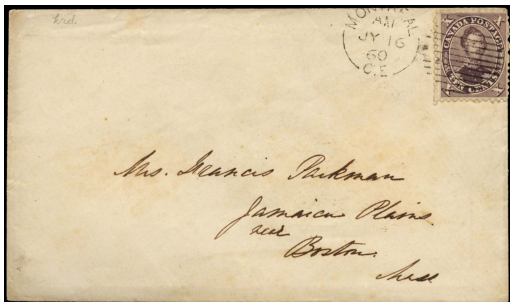 MONTREAL
AM
JY 16
60
C.E
CANADA POSTAGE
TEN CENTS
Mrs. Francis Parkman
Jamaica Plains
near
Boston
Mass